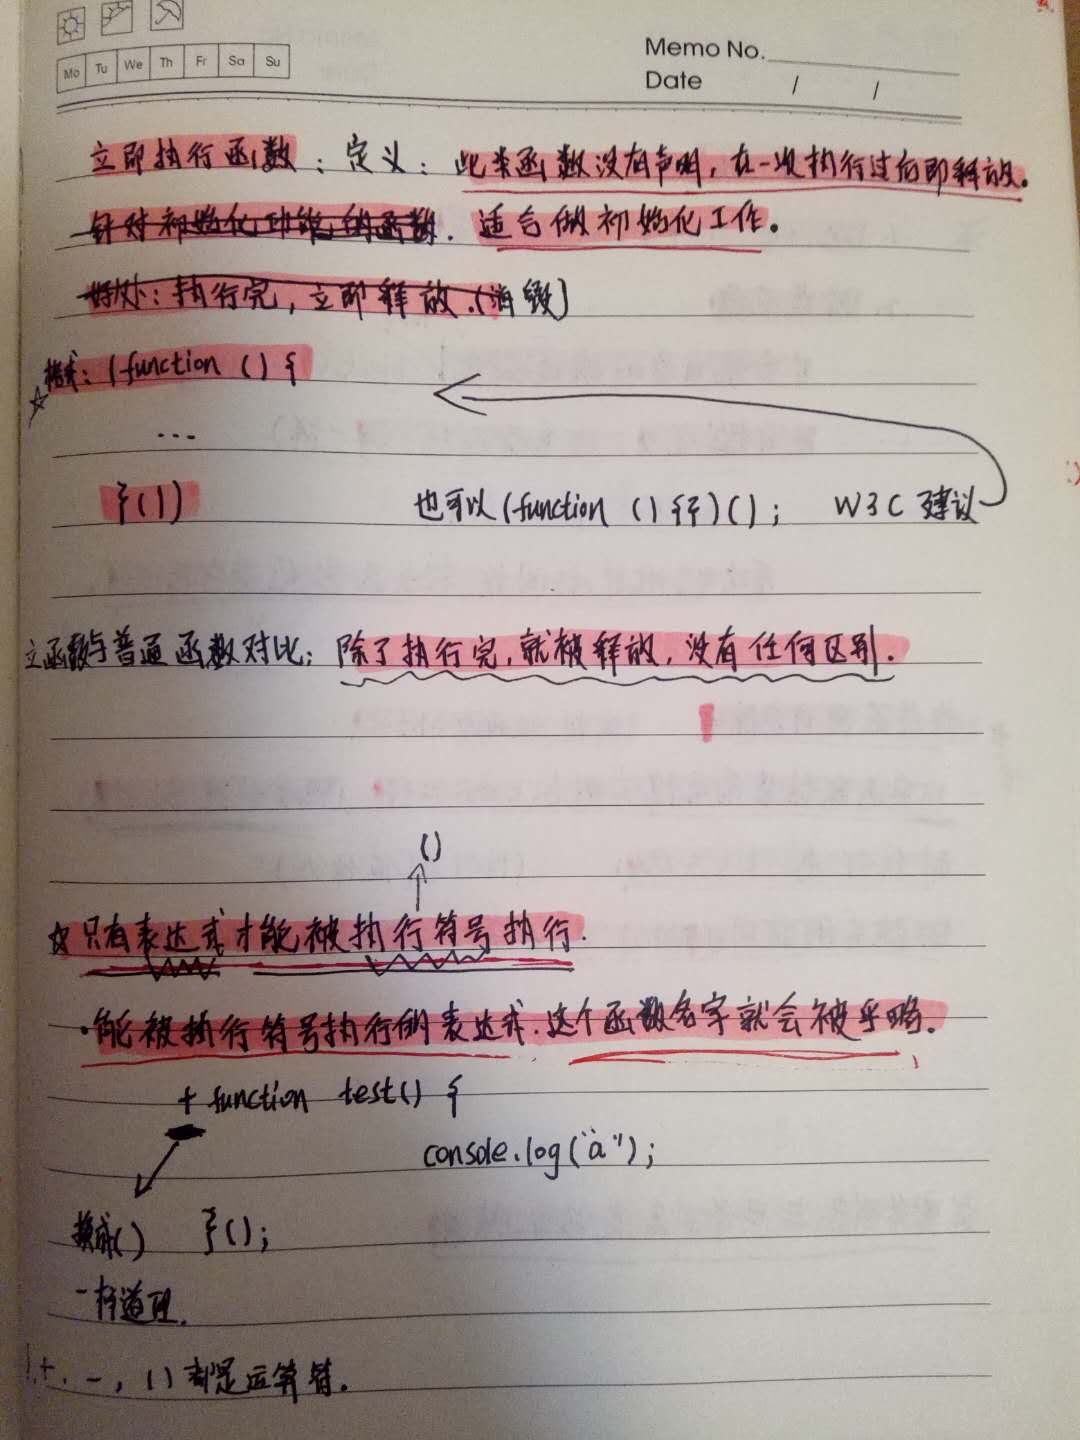 Mo Tu We Th Fr Sa Su
Memo No.
Date / /
立即执行函数：定义：此类函数没有声明，在一次执行过后即释放。
针对初始化功能的函数. 适合做初始化工作。
好处：执行完，立即释放.(销毁)
☆格式：(function () {
...
}())
也可以(function () {})(); W3C 建议
立函数与普通函数对比：除了执行完，就被释放，没有任何区别.
()
☆只有表达式才能被执行符号执行.
·能被执行符号执行的表达式.这个函数名字就会被乎略.
+ function test() {
console.log("a");
换成() }();
一样道理.
!,+,-,()都是运算符.